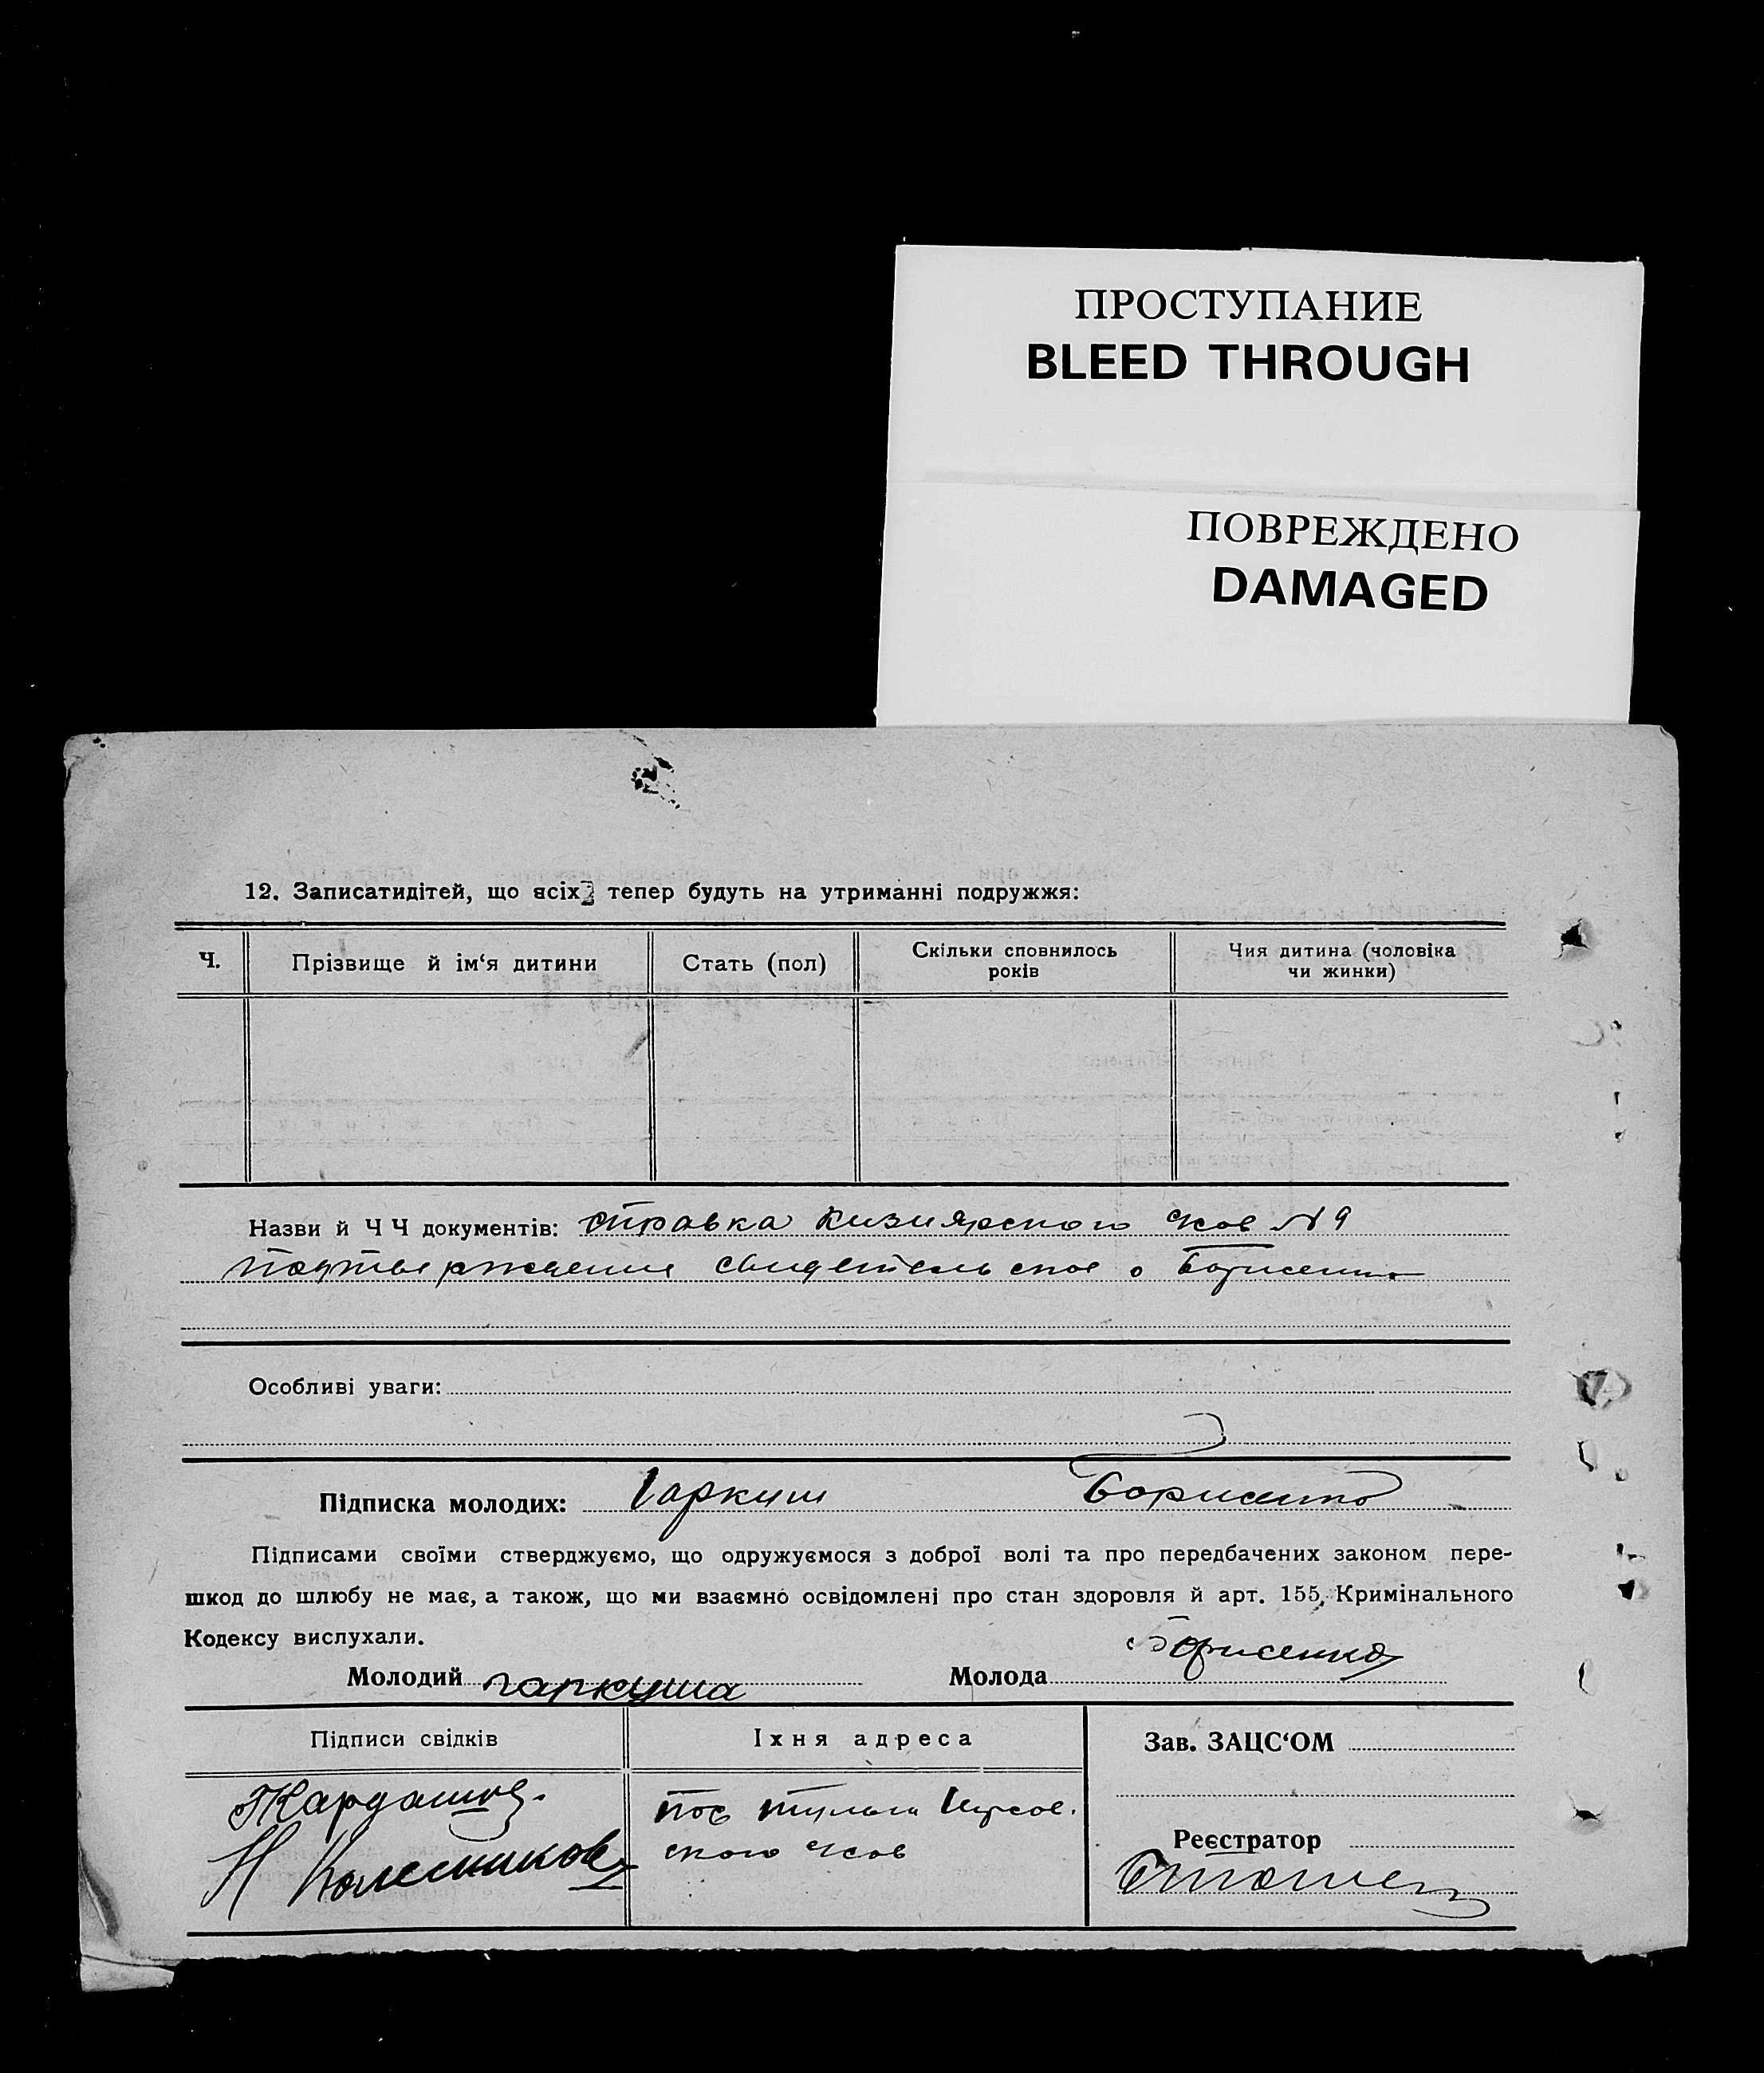 ПРОСТУПАНИЕ
BLEED THROUGH
ПОВРЕЖДЕНО
DAMAGED
12. Записатидітей, що всіх тепер будуть на утриманні подружжя:
Ч.
Прізвище й ім‘я дитини
Стать (пол)
Скільки сповнилось
років
Чия дитина (чоловіка
чи жинки)
Назви й Ч Ч документів: справка Кизиярского №9
подтверждение свидетельское о Борисенко
Особливі уваги:
Підписка молодих: Гаркуш Борисенко
Підписами своїми стверджуємо, що одружуємося з доброї волі та про передбачених законом пере-
шкод до шлюбу не має, а також, що ми взаємно освідомлені про стан здоровля й арт. 155, Кримінального
Кодексу вислухали.
Борисенко
Молодий гаркуша Молода
Підписи свідків
Їхня адреса
Зав. ЗАЦС‘ОМ
Кардашов.
Н Колесников
пос
ского
Реєстратор